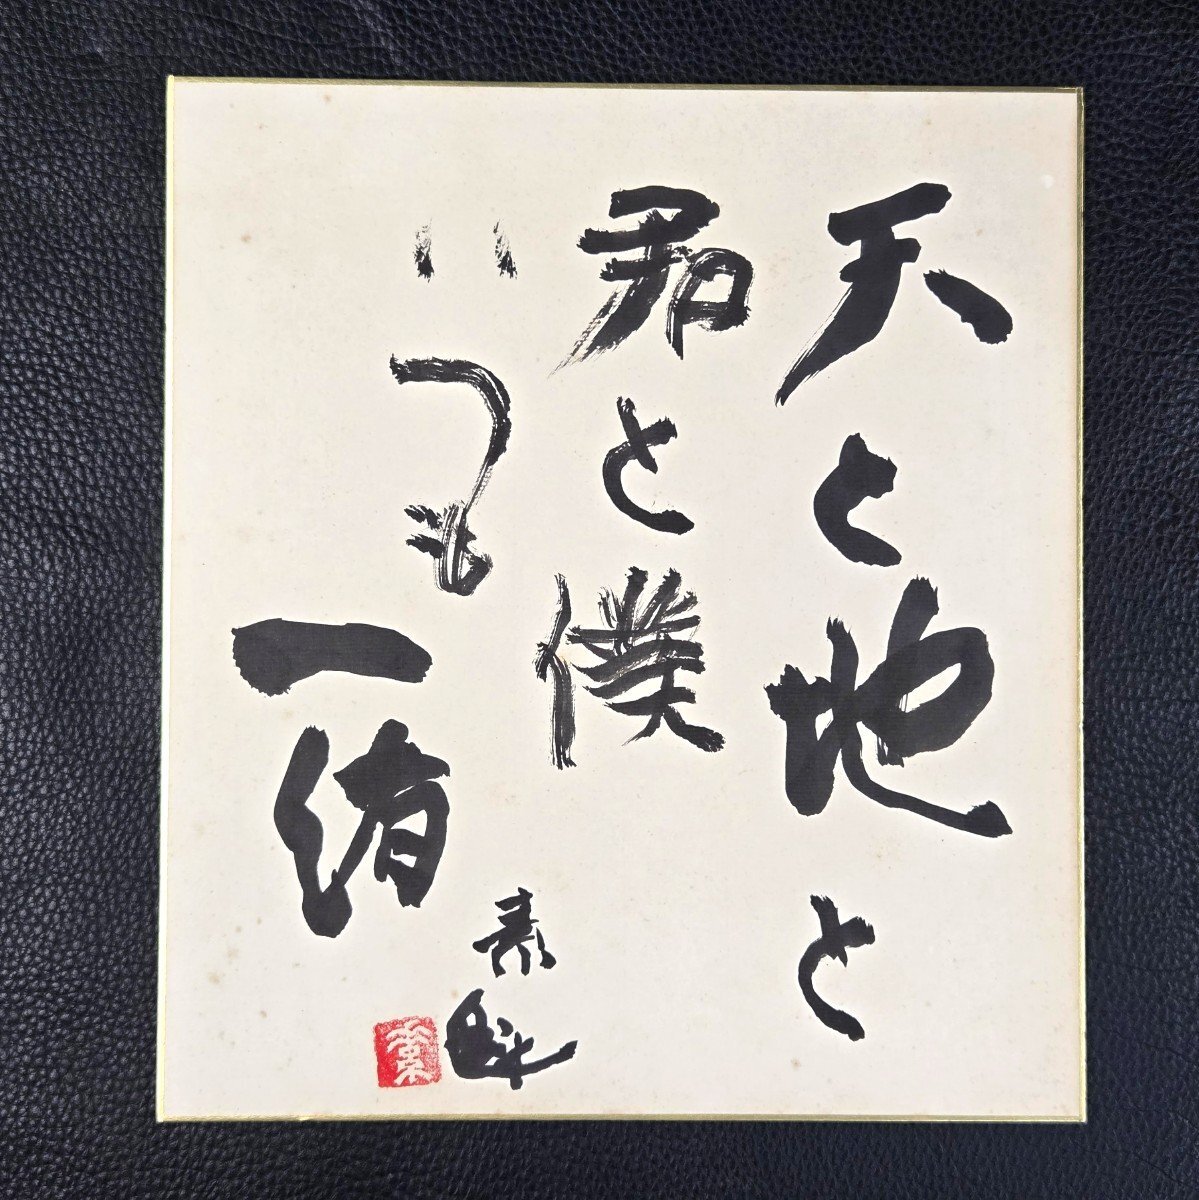 天と地と
君と僕
いつも
一緒
素